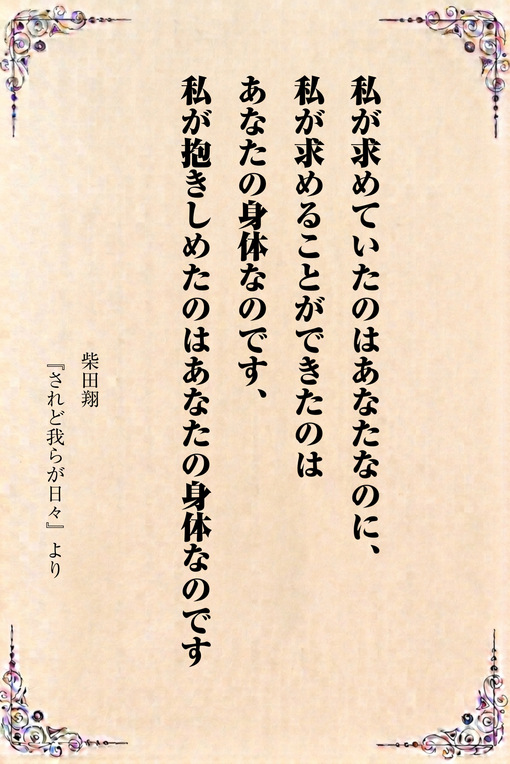 私が求めていたのはあなたなのに、
私が求めることができたのは
あなたの身体なのです、
私が抱きしめたのはあなたの身体なのです
柴田翔
『されど我らが日々』より